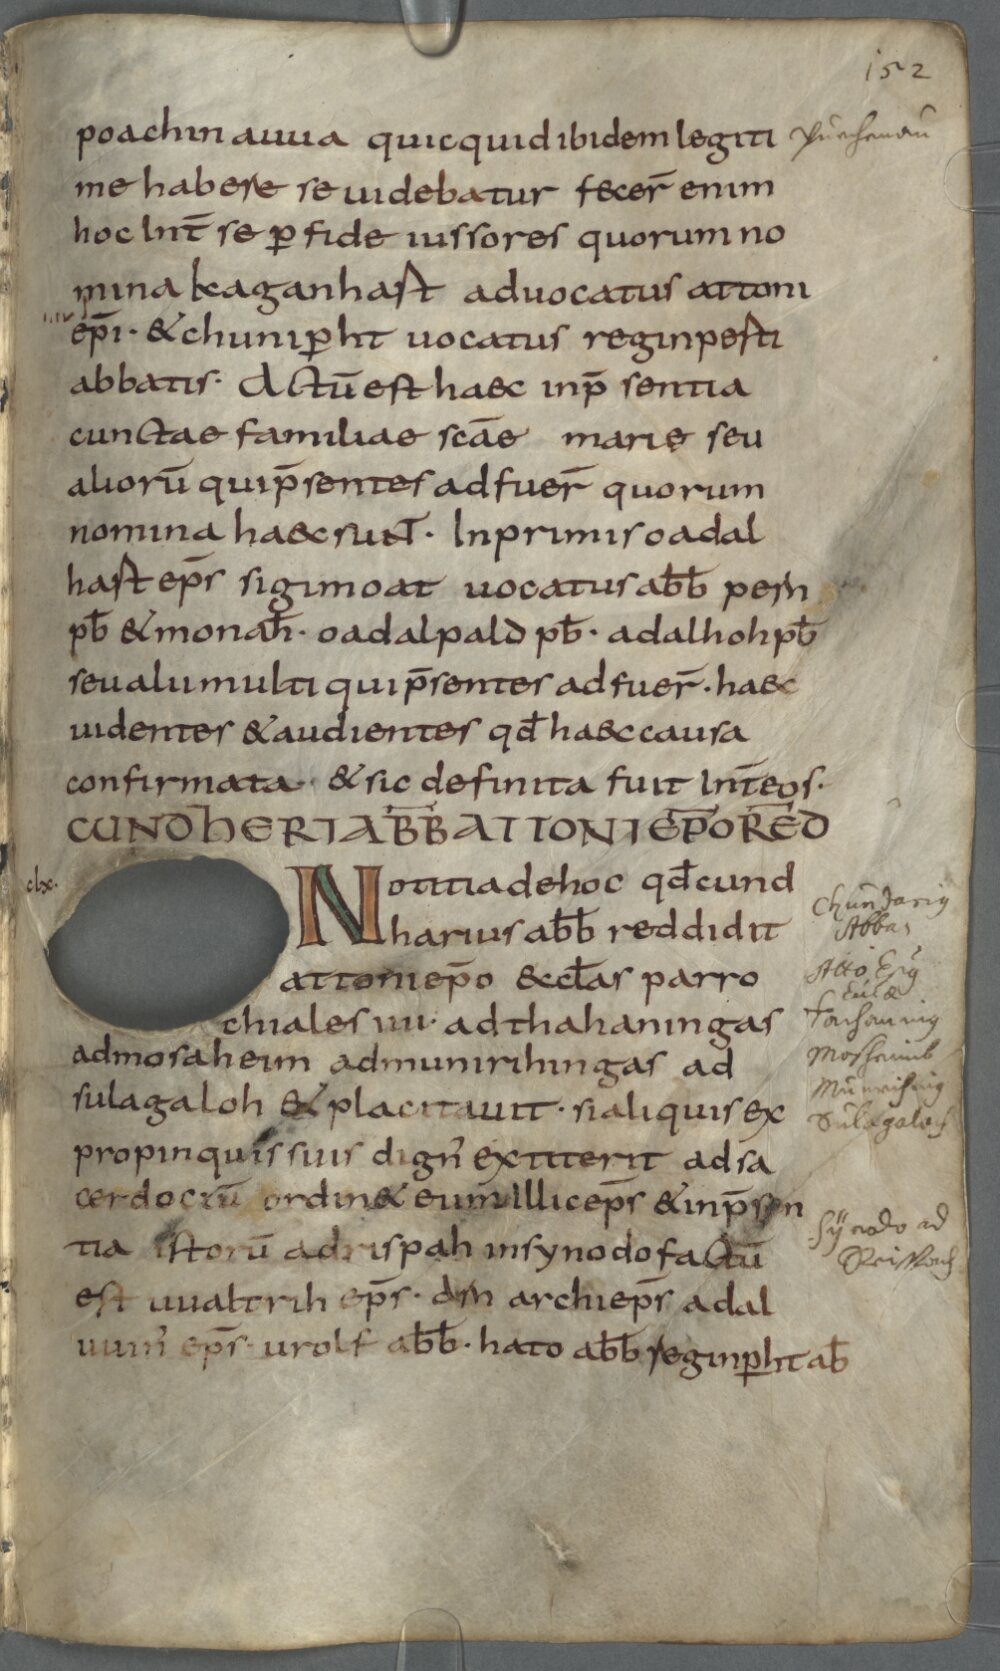 152
poachin auua quicquid ibidem legiti
me habere se uidebatur fecer̄ enim
hoc Int̄ se ꝑ fide iussores quorum no
mina keaganhast aduocatus attoni
ep̄i· & chuniꝑht uocatus reginpesti
abbatis· Actū est haec inp̄sentia
cunctae familiae scāe marię seu
aliorū qui p̄sentes adfuer̄ quorum
nomina haec sunt· Inprimis oadal
hast ep̄s sigimoat uocatus ab̄b pern
pb̄ & monah̄· oadalpald pb̄· adalhoh pb̄
seu alii multi qui p̄sentes adfuer̄· haec
uidentes & audientes qd̄ haec causa
confirmata· & sic definita fuit Int̄ eos·
CUNDHERI AB̄B ATTONI EP̄O RED̄
clx·
Notitia de hoc qd̄ cund
harius ab̄b reddidit
attoni ep̄o ecc̄las parro
chiales iiii· ad thahaningas
ad mosaheim ad munirihingas ad
sulagaloh & placitauit· si aliquis ex
propinquis suis dign̄ extiterit ad sa
cerdociū ordin& eum Illic ep̄s & inp̄sen
tia istorū ad rispah in synodo factū
est uualtrih ep̄s· arn archiep̄s adal
uuin̄ ep̄s· urolf ab̄b· hato ab̄b reginꝑht ab̄
Chundarig
Abbas
Atto
Mosheimb
Sulagaloch
Synodo ad
Reisbach